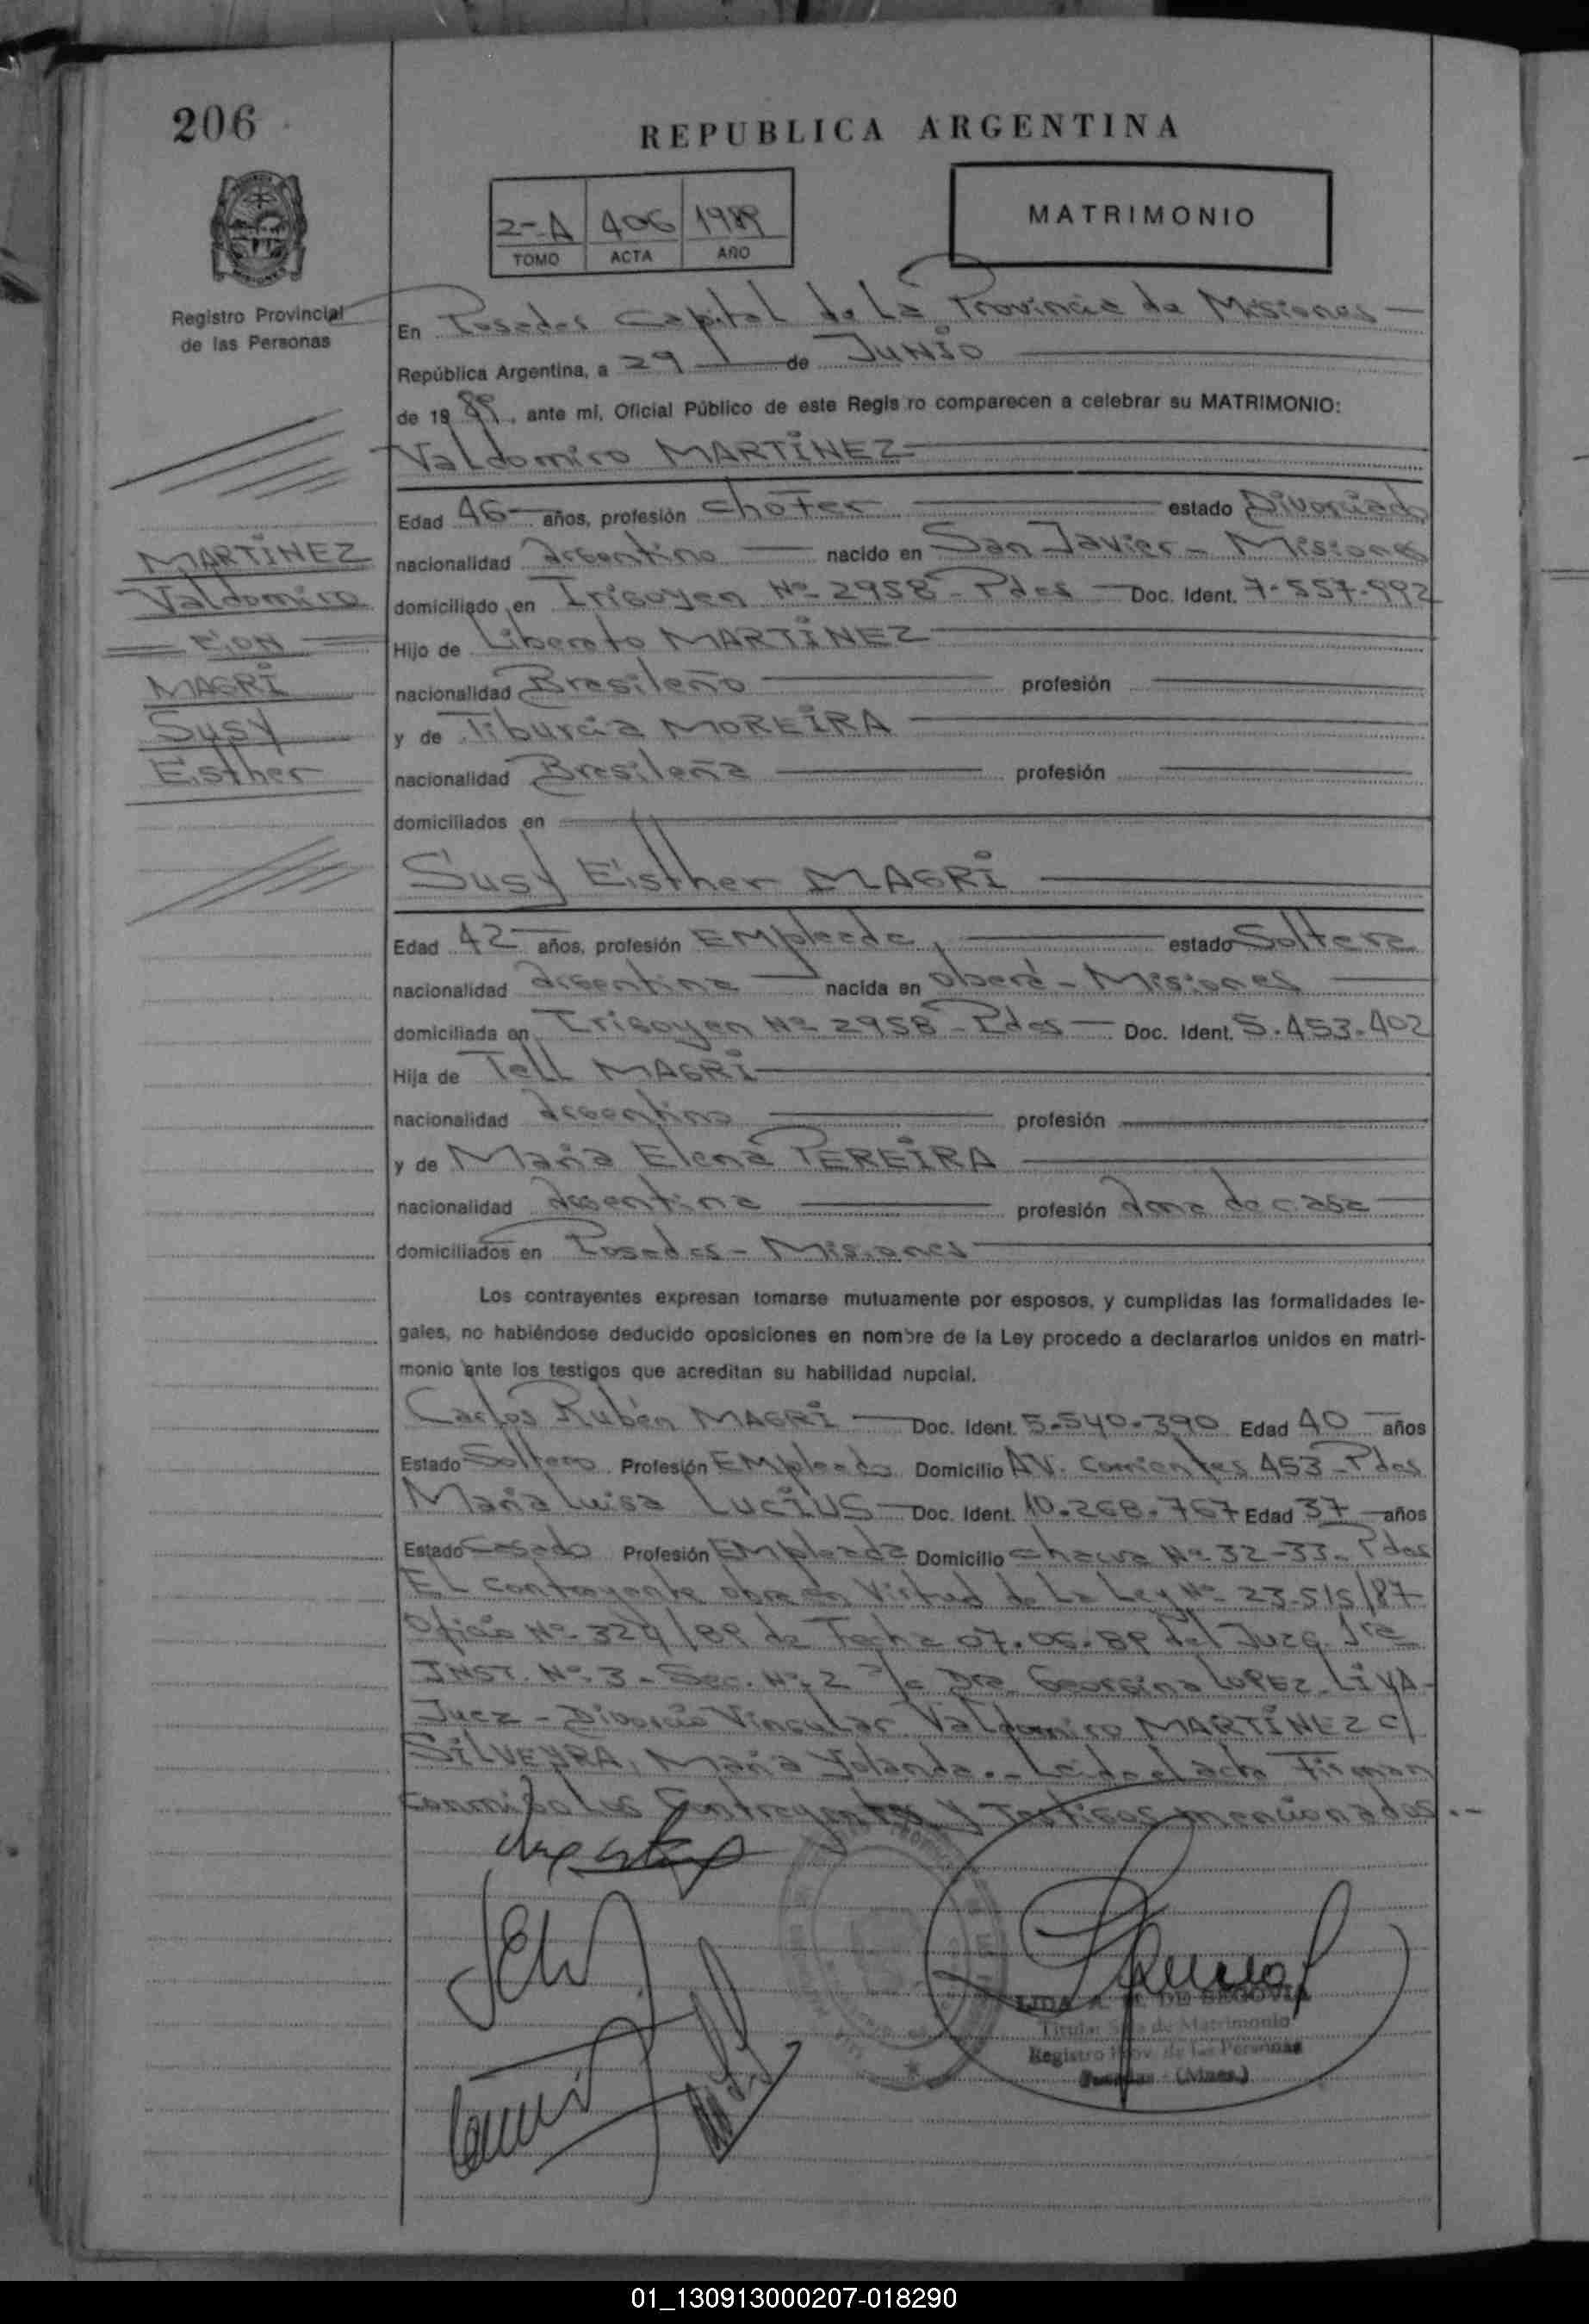 206
REPUBLICA ARGENTINA
2-A 406 1989
TOMO ACTA AÑO
MATRIMONIO
Registro Provincial
de las Personas
En Posadas Capital de La Provincia de Misiones
República Argentina, a 29 de JUNIO
de 1989, ante mí, Oficial Público de este Regis ro comparecen a celebrar su MATRIMONIO:
Valdomiro MARTINEZ
Edad 46 años, profesión chofer estado Divorciado
nacionalidad argentino nacido en San Javier - Misiones
domiciliado en Irigoyen Nº 2958 - Pdas Doc. Ident. 7.557.992
Hijo de Liberato MARTINEZ
nacionalidad Brasileño profesión
y de Tiburcia MOREIRA
nacionalidad Brasileña profesión
domiciliados en
MARTINEZ
Valdomiro
CON
MAGRI
Susy
Esther
Susy Esther MAGRI
Edad 42 años, profesión EMpleada, estado Soltera
nacionalidad argentina nacida en Oberá - Misiones
domiciliada en Irigoyen Nº 2958 - Pdas Doc. Ident. 5.453.402
Hija de Tell MAGRI
nacionalidad argentino profesión
y de Maria Elena PEREIRA
nacionalidad argentina profesión ama de casa
domiciliados en Posadas - Misiones
Los contrayentes expresan tomarse mutuamente por esposos, y cumplidas las formalidades le-
gales, no habiéndose deducido oposiciones en nombre de la Ley procedo a declararlos unidos en matri-
monio ante los testigos que acreditan su habilidad nupcial.
Carlos Rubén MAGRI Doc. Ident. 5.540.390 Edad 40 años
Estado Soltero Profesión EMpleado Domicilio AV. Corrientes 453 - Pdas
Maria Luisa LUCIUS Doc. Ident. 10.268.767 Edad 37 años
Estado Casado Profesión EMpleada Domicilio chacra Nº 32-33 - Pdas
EL contrayente obra en Virtud de La Ley Nº 23.515/87
Oficio Nº 324/89 de Fecha 07.06.89 del Juzg. 1ra
INST. Nº 3 - Sec. Nº 2 a/c Dra. Georgina LOPEZ LIVA -
Juez - Divorcio Vincular Valdomiro MARTINEZ c/
SILVEYRA, Maria Yolanda.- Leida el acta Firman
conmigo Los Contrayentes y Testigos mencionados.-
DE SEGOVIA
Titular de Matrimonio
Registro Prov. de las Personas
Posadas - (Mnes.)
01_130913000207-018290